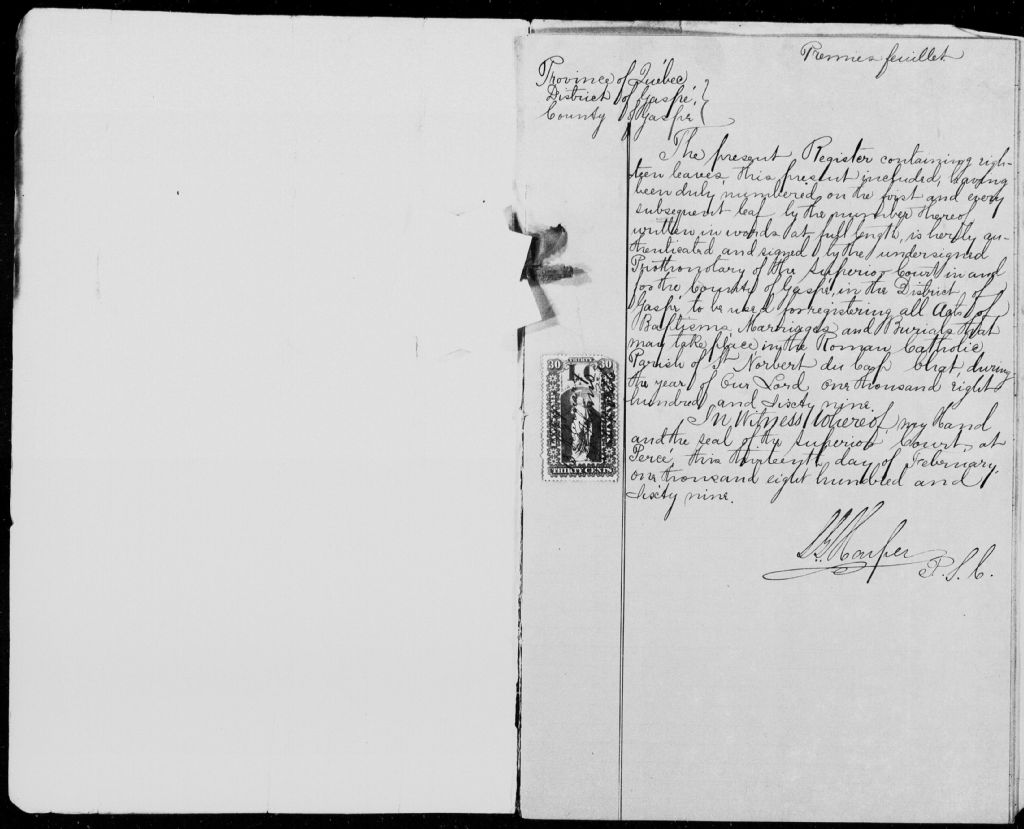 Premier feuillet
Province of Québec
District of Gaspé
County of Gaspé
The present Register containing eigh-
teen leaves this present included, having
been duly numbered on the first and every
subsequent leaf by the number thereof
written in words at full length, is hereby au-
thenticated and signed by the undersigned
Prothonotary of the Superior Court in and
for the County of Gaspé, in the District of
Gaspé to be used for registering all Acts of
Baptisms Marriages and Burials that
may take place in the Roman Catholic
Parish of St Norbert du Cap Chat, during
the year of Our Lord one thousand eight
hundred and sixty nine.
In Witness Whereof my Hand
and the seal of the Superior Court at
Percé, this thirteenth day of February,
one thousand eight hundred and
sixty nine.
Harper
P.S.C.
THIRTY
30 30
THIRTY CENTS